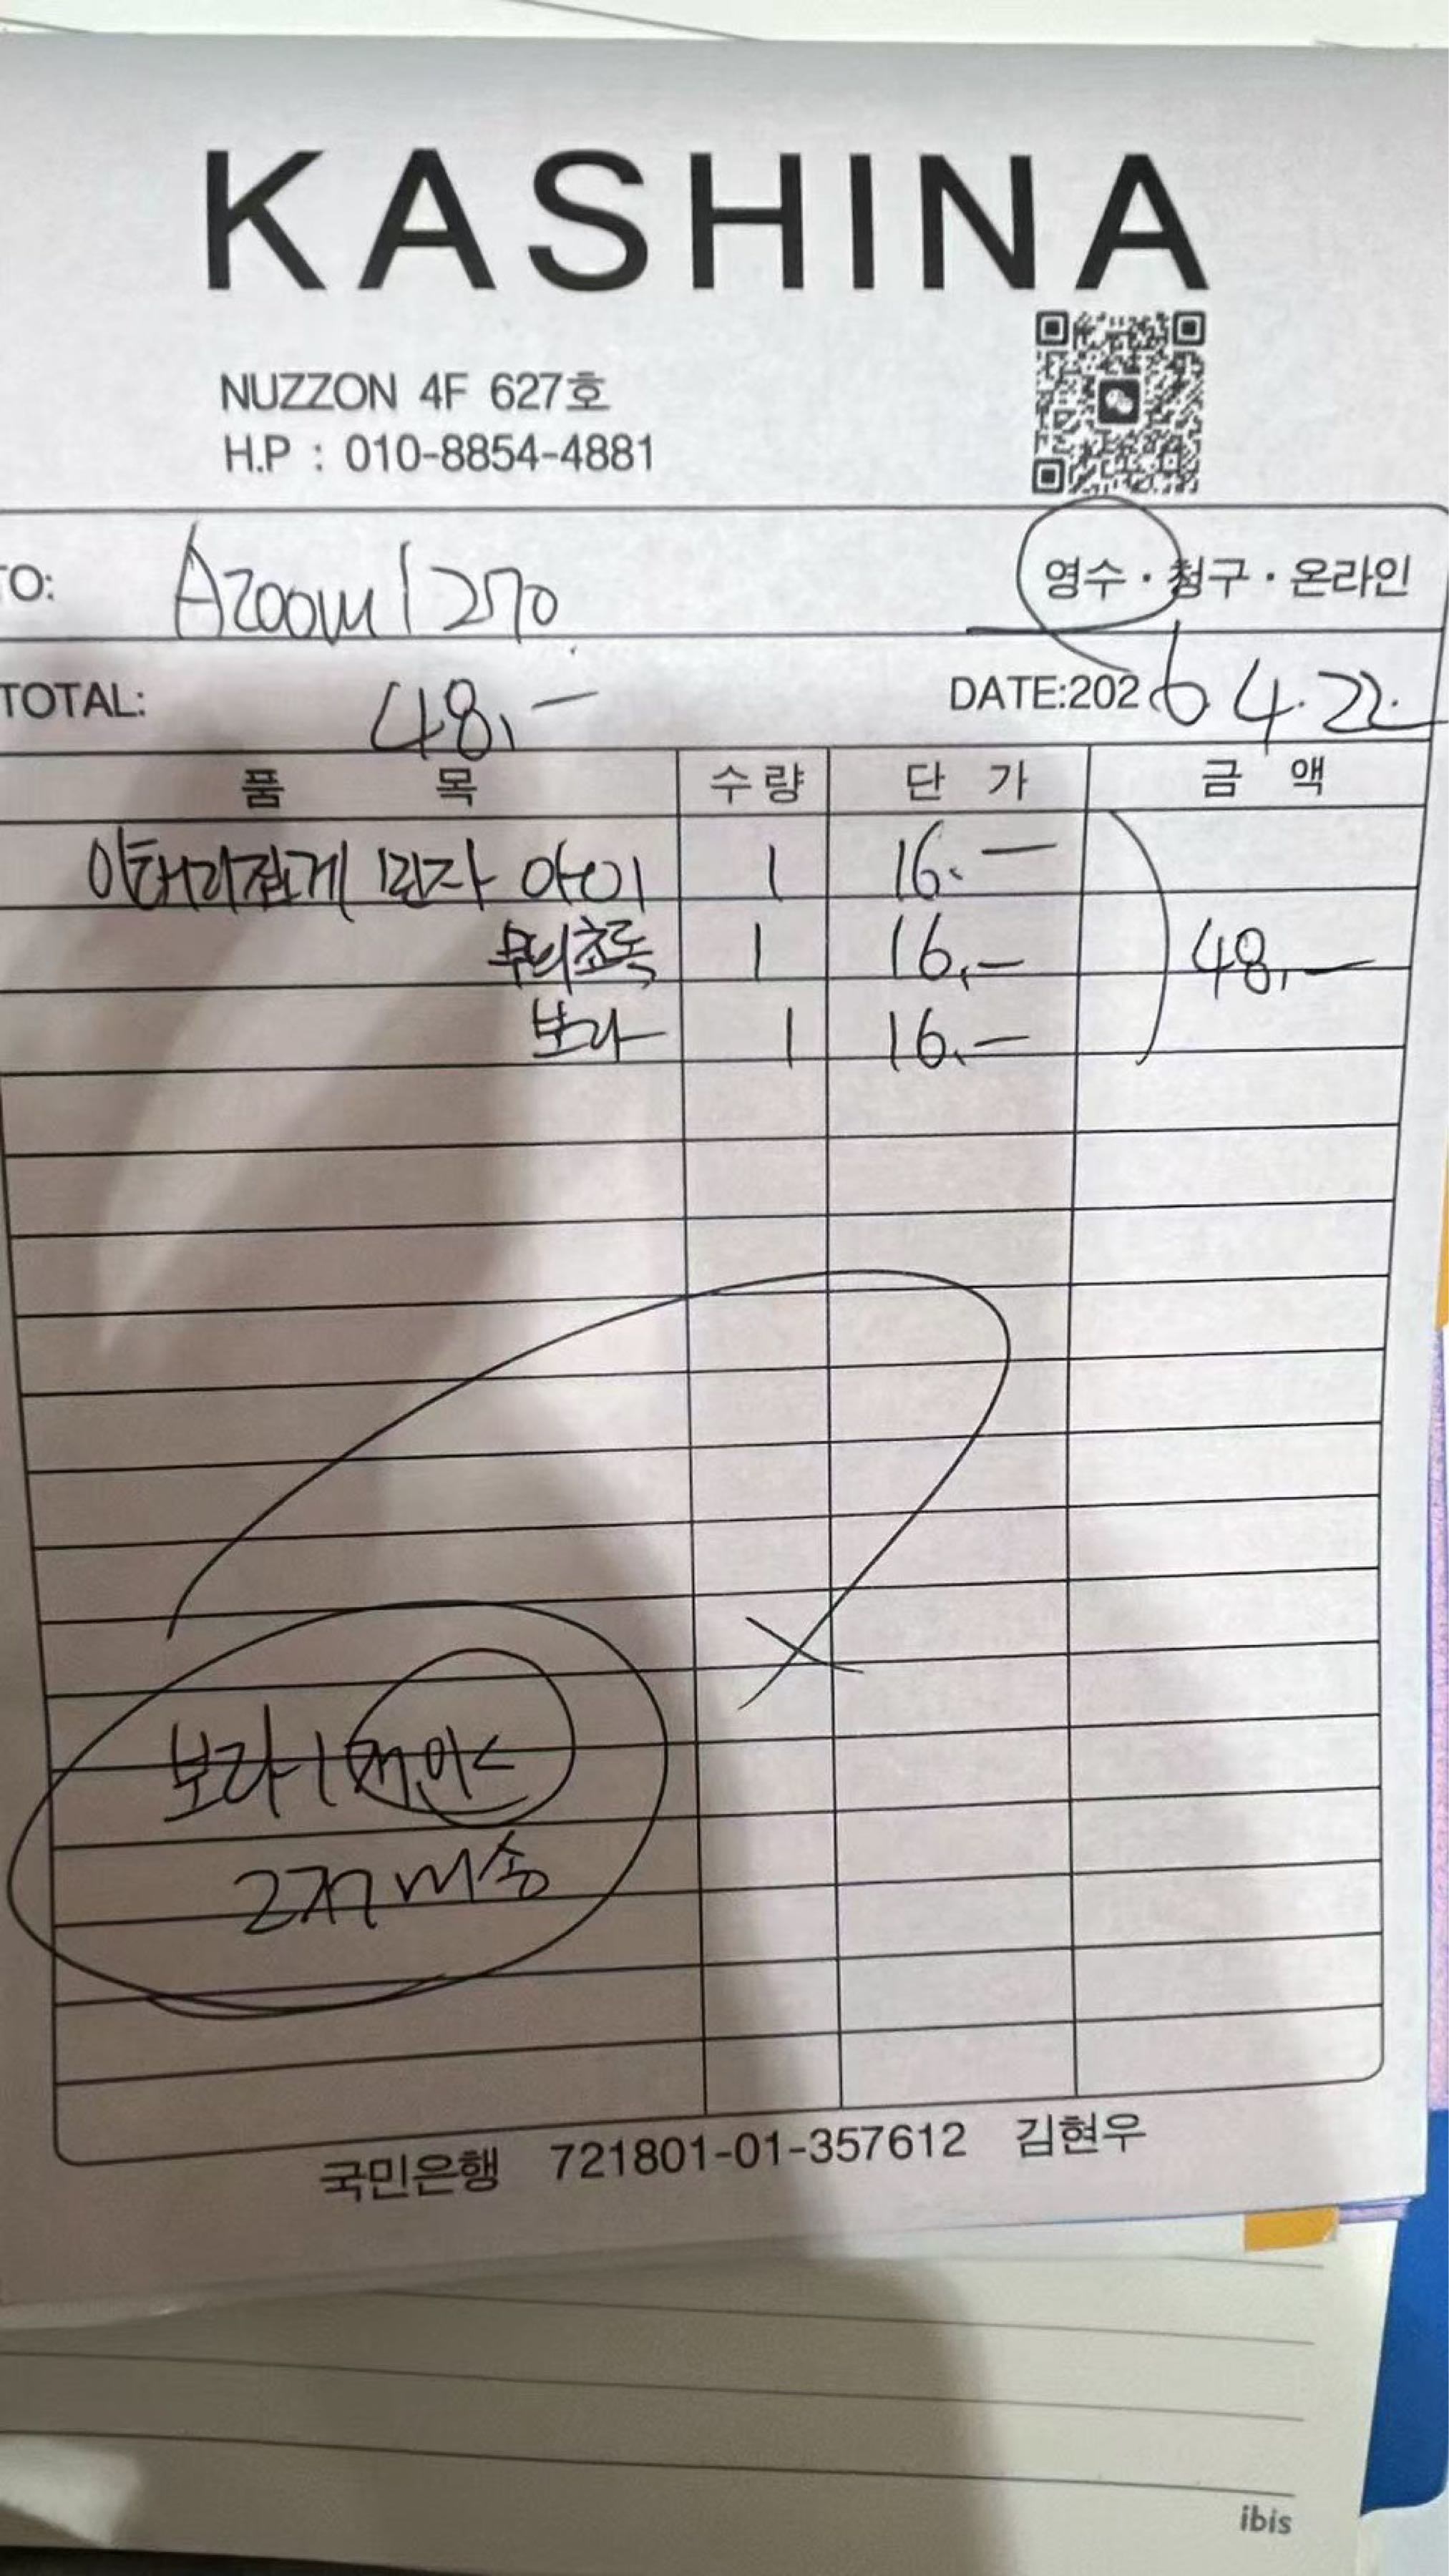 KASHINA
NUZZON 4F 627호
H.P : 010-8854-4881
TO: Azoom 1270
영수 · 청구 · 온라인
TOTAL: 48,-
DATE:2026 4.22
품 목 수량 단 가 금 액
이태리집게 민자 아이 1 16.-
초록 1 16,- 48,-
보라 1 16.-
보라 1
배송
국민은행 721801-01-357612 김현우
ibis